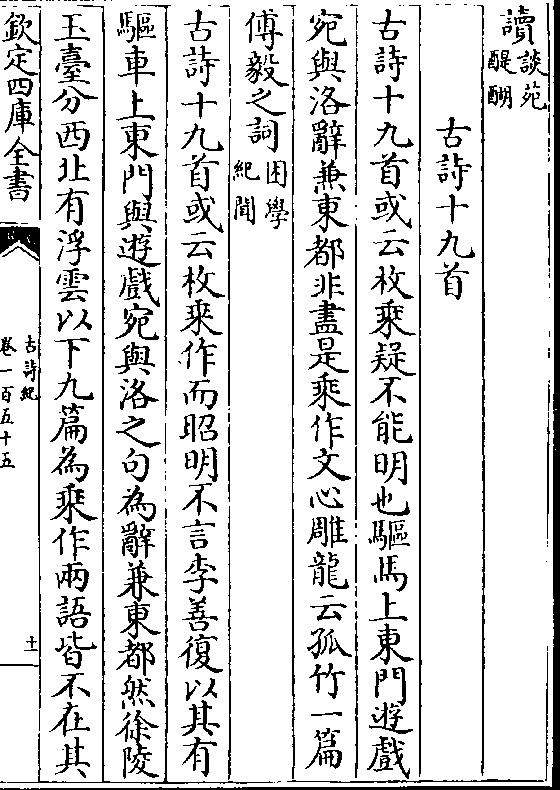 讀談苑醍醐
古詩十九首
古詩十九首或云枚乗疑不能明也驅馬上東門遊戲
宛與洛辭兼東都非盡是乘作文心雕龍云孤竹一篇
傅毅之詞困學紀聞
古詩十九首或云枚乗作而昭明不言李善復以其有
驅車上東門與遊戲宛與洛之句為辭兼東都然徐陵
玉臺分西北有浮雲以下九篇為乗作兩語皆不在其
欽定四庫全書
古詩紀
卷一百五十五
十一